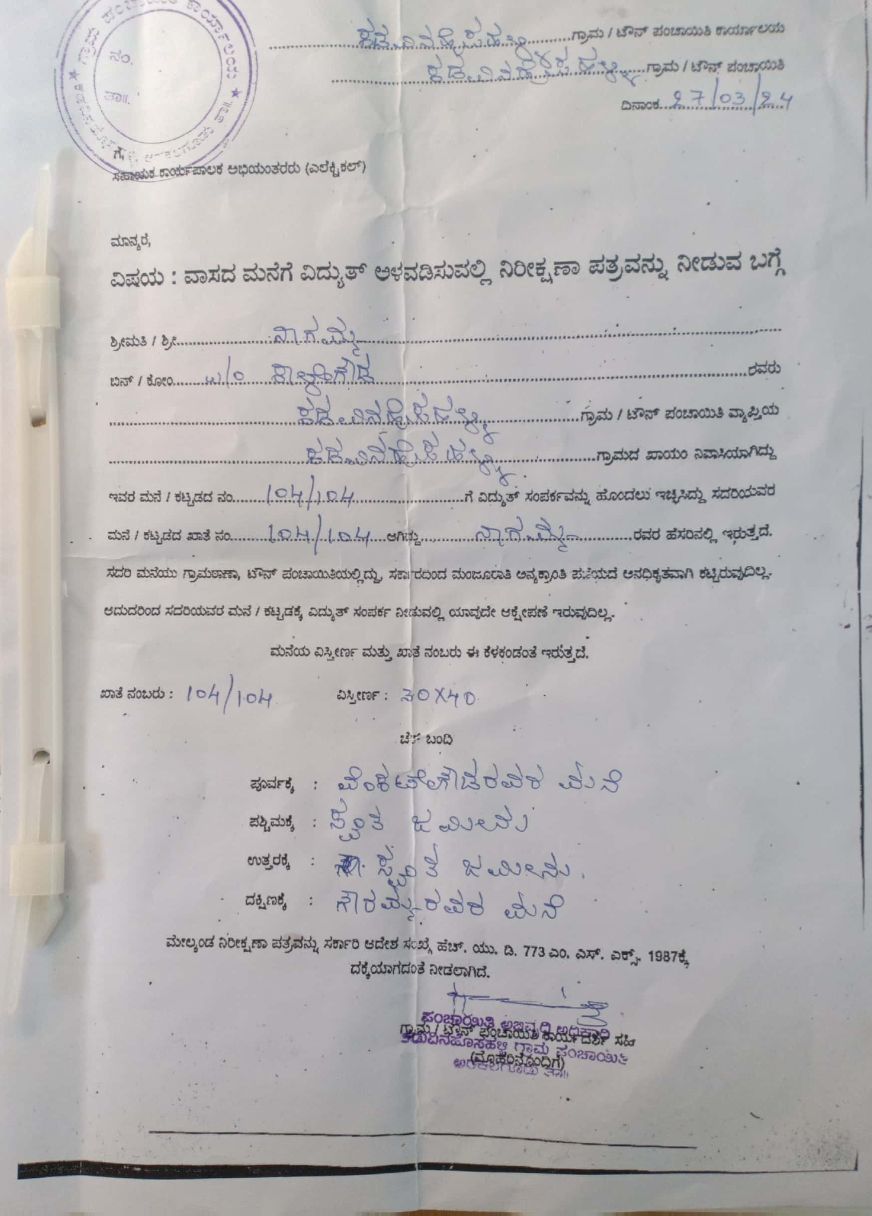 ಗ್ರಾಮ ಪಂಚಾಯಿತಿ ಕಾರ್ಯಾಲಯ
ನಂ.
ತಾ॥
ಕಡುವಿನಹೊಸಹಳ್ಳಿ ಗ್ರಾಮ / ಟೌನ್ ಪಂಚಾಯಿತಿ ಕಾರ್ಯಾಲಯ
ಕಡುವಿನಹೊಸಹಳ್ಳಿ ಗ್ರಾಮ / ಟೌನ್ ಪಂಚಾಯಿತಿ
ದಿನಾಂಕ 27/03/24
ಗೆ,
ಸಹಾಯಕ ಕಾರ್ಯಪಾಲಕ ಅಭಿಯಂತರರು (ಎಲೆಕ್ಟ್ರಿಕಲ್)
ಮಾನ್ಯರೆ,
ವಿಷಯ : ವಾಸದ ಮನೆಗೆ ವಿದ್ಯುತ್ ಅಳವಡಿಸುವಲ್ಲಿ ನಿರೀಕ್ಷಣಾ ಪತ್ರವನ್ನು ನೀಡುವ ಬಗ್ಗೆ
ಶ್ರೀಮತಿ / ಶ್ರೀ ನಾಗಮ್ಮ
ಬಿನ್ / ಕೋಂ w/o ಕಾಳೇಗೌಡ ರವರು
ಕಡುವಿನಹೊಸಹಳ್ಳಿ ಗ್ರಾಮ / ಟೌನ್ ಪಂಚಾಯಿತಿ ವ್ಯಾಪ್ತಿಯ
ಕಡುವಿನಹೊಸಹಳ್ಳಿ ಗ್ರಾಮದ ಖಾಯಂ ನಿವಾಸಿಯಾಗಿದ್ದು
ಇವರ ಮನೆ / ಕಟ್ಟಡದ ನಂ 104/104 ಗೆ ವಿದ್ಯುತ್ ಸಂಪರ್ಕವನ್ನು ಹೊಂದಲು ಇಚ್ಛಿಸಿದ್ದು ಸದರಿಯವರ
ಮನೆ / ಕಟ್ಟಡದ ಖಾತೆ ನಂ 104/104 ಆಗಿದ್ದು ನಾಗಮ್ಮ ರವರ ಹೆಸರಿನಲ್ಲಿ ಇರುತ್ತದೆ.
ಸದರಿ ಮನೆಯು ಗ್ರಾಮಠಾಣಾ, ಟೌನ್ ಪಂಚಾಯಿತಿಯಲ್ಲಿದ್ದು, ಸರ್ಕಾರದಿಂದ ಮಂಜೂರಾತಿ ಅನ್ಯಕ್ರಾಂತಿ ಪಡೆಯದೆ ಅನಧಿಕೃತವಾಗಿ ಕಟ್ಟಿರುವುದಿಲ್ಲ.
ಆದುದರಿಂದ ಸದರಿಯವರ ಮನೆ / ಕಟ್ಟಡಕ್ಕೆ ವಿದ್ಯುತ್ ಸಂಪರ್ಕ ನೀಡುವಲ್ಲಿ ಯಾವುದೇ ಆಕ್ಷೇಪಣೆ ಇರುವುದಿಲ್ಲ.
ಮನೆಯ ವಿಸ್ತೀರ್ಣ ಮತ್ತು ಖಾತೆ ನಂಬರು ಈ ಕೆಳಕಂಡಂತೆ ಇರುತ್ತದೆ.
ಖಾತೆ ನಂಬರು : 104/104 ವಿಸ್ತೀರ್ಣ : 30X40
ಚೆಕ್ ಬಂದಿ
ಪೂರ್ವಕ್ಕೆ : ವೆಂಕಟೇಗೌಡರವರ ಮನೆ
ಪಶ್ಚಿಮಕ್ಕೆ : ಸ್ವಂತ ಜಮೀನು
ಉತ್ತರಕ್ಕೆ : ಸ್ವಂತ ಜಮೀನು.
ದಕ್ಷಿಣಕ್ಕೆ : ಗೌರಮ್ಮರವರ ಮನೆ
ಮೇಲ್ಕಂಡ ನಿರೀಕ್ಷಣಾ ಪತ್ರವನ್ನು ಸರ್ಕಾರಿ ಆದೇಶ ಸಂಖ್ಯೆ ಹೆಚ್. ಯು. ಡಿ. 773 ಎಂ. ಎಸ್. ಎಕ್ಸ್. 1987ಕ್ಕೆ
ದಕ್ಕೆಯಾಗದಂತೆ ನೀಡಲಾಗಿದೆ.
ಪಂಚಾಯಿತಿ ಅಭಿವೃದ್ಧಿ ಅಧಿಕಾರಿ
ಗ್ರಾಮ / ಟೌನ್ ಪಂಚಾಯಿತಿ ಕಾರ್ಯದರ್ಶಿ ಸಹಿ
ಕಡುವಿನಹೊಸಹಳ್ಳಿ ಗ್ರಾಮ ಪಂಚಾಯಿತಿ
(ಮೊಹರಿನೊಂದಿಗೆ)
ಅರಕಲಗೂಡು ತಾ॥